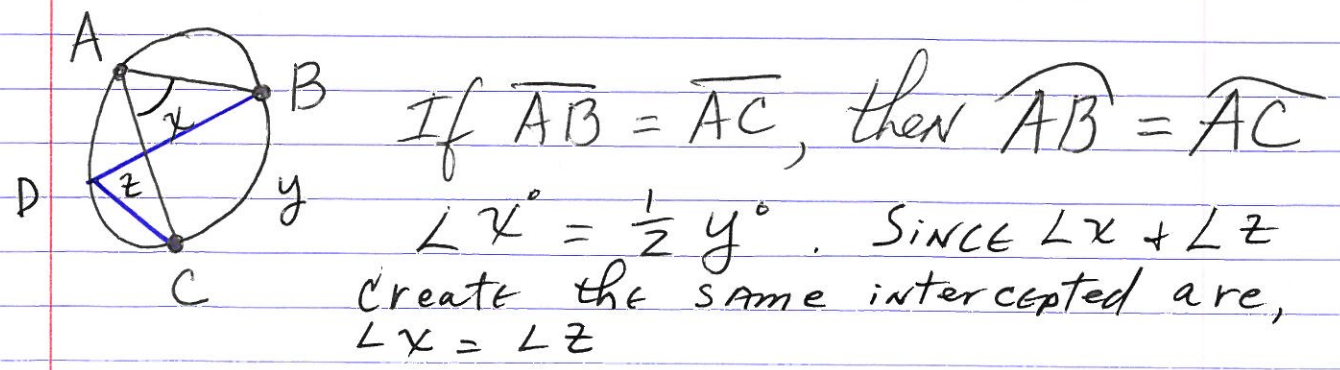 A
B
x
D
z
y
C
If A̅B̅ = A̅C̅, then A͡B = A͡C
∠x° = ½ y°. SiNCE ∠x + ∠z
Create the same intercepted are,
∠x = ∠z